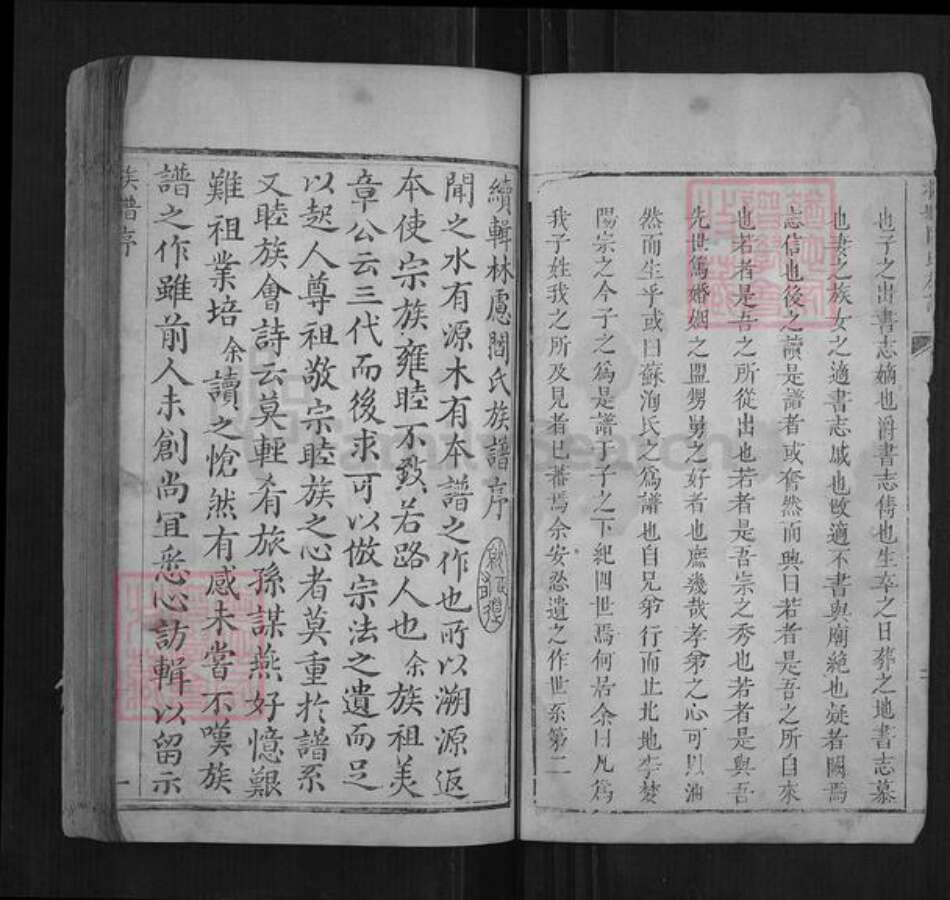 也子之出書志嫡也爵書志儁也生卒之日葬之地書志慕
也妻之族女之適書志戚也改適不書與廟絕也疑者闕焉
志信也後之讀是譜者或奮然而興曰若者是吾之所自來
也若者是吾之所從出也若者是吾宗之秀也若者是與吾
先世篤婚姻之盟甥舅之好者也庶幾哉孝弟之心可以油
然而生乎或曰蘇洵氏之為譜也自兄弟行而止北地李夢
陽宗之今子之為是譜于子之下紀四世焉何居余曰凡為
我子姓我之所及見者已蕃焉余安忍遺之作世系第二
續輯林慮閻氏族譜序
聞之水有源木有本譜之作也所以溯源返
本使宗族雍睦不致若路人也余族祖美
章公云三代而後求可以倣宗法之遺而足
以起人尊祖敬宗睦族之心者莫重於譜系
又睦族會詩云莫輕肴旅孫謀燕好憶艱
難祖業培余讀之愴然有感未嘗不嘆族
譜之作雖前人未創尚宜悉心訪輯以留示
族譜序
一